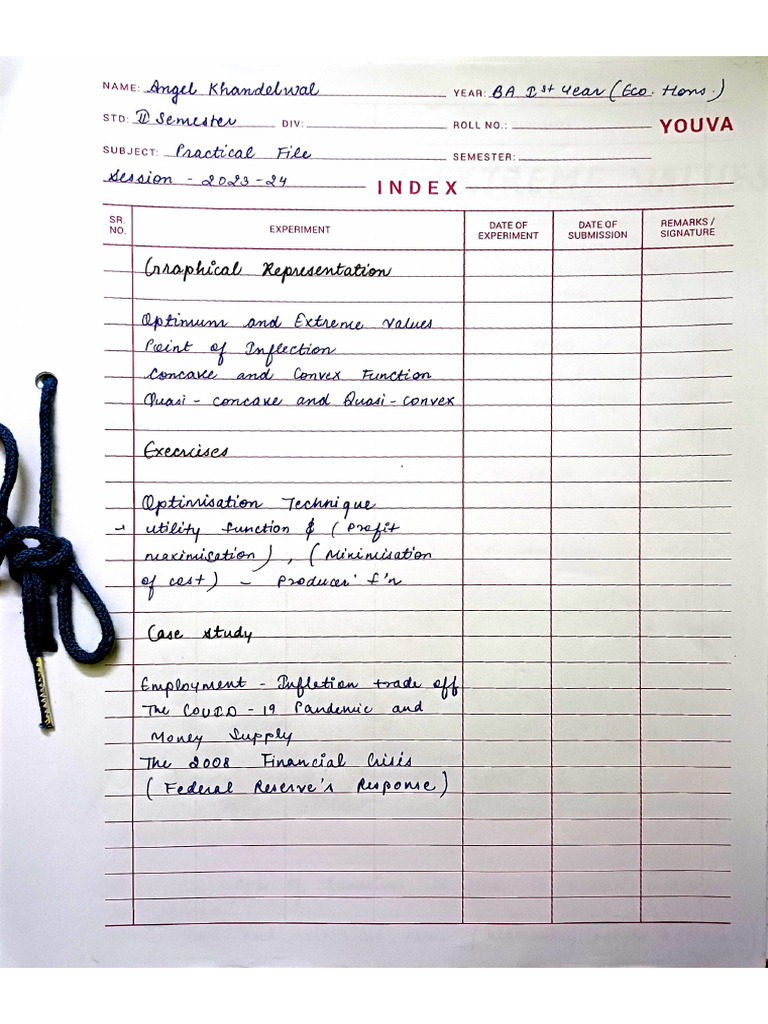 NAME: Angel Khandelwal YEAR: BA Ist Year (Eco. Hons.)
STD: II Semester DIV: ROLL NO.: YOUVA
SUBJECT: Practical File SEMESTER:
Session - 2023-24 INDEX
SR. NO. EXPERIMENT DATE OF EXPERIMENT DATE OF SUBMISSION REMARKS / SIGNATURE
Graphical Representation
Optimum and Extreme Values
Point of Inflection
Concave and Convex Function
Quasi - concave and Quasi - convex
Exercises
Optimisation Technique
Utility function & (Profit
maximisation) , (Minimisation
of cost) - Producer f'n
Case study
Employment - Infletion trade off
The COVID - 19 Pandemic and
Money Supply
The 2008 Financial Crisis
(Federal Reserve's Response)